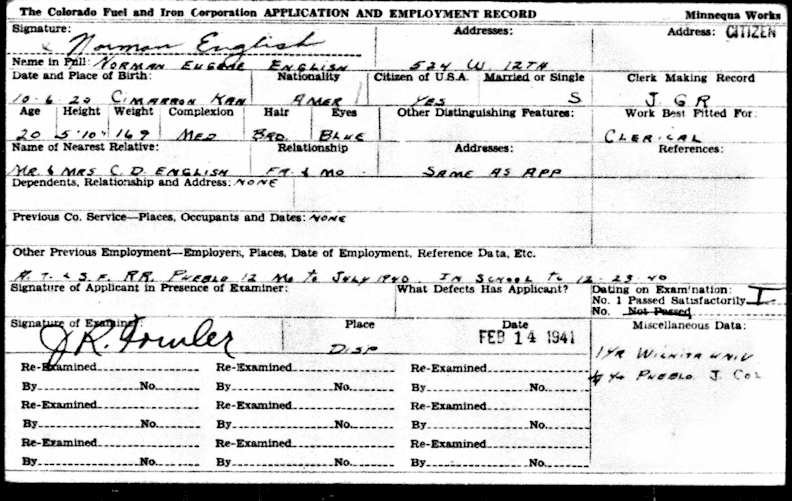 The Colorado Fuel and Iron Corporation APPLICATION AND EMPLOYMENT RECORD Minnequa Works
Signature: Addresses: Address: CITIZEN
Norman English
Name in Full: NORMAN EUGENE ENGLISH 524 W. 12TH
Date and Place of Birth: Nationality Citizen of U.S.A. Married or Single Clerk Making Record
10-6-20 CIMARRON KAN AMER YES S J.G.R
Age Height Weight Complexion Hair Eyes Other Distinguishing Features: Work Best Fitted For:
20 5'10" 169 MED BRO. BLUE CLERICAL
Name of Nearest Relative: Relationship Addresses: References:
MR. & MRS C. D. ENGLISH FA. & MO. SAME AS APP
Dependents, Relationship and Address: NONE
Previous Co. Service—Places, Occupants and Dates: NONE
Other Previous Employment—Employers, Places, Date of Employment, Reference Data, Etc.
A. T. & S. F. RR. PUEBLO 12 MO TO JULY 1940. IN SCHOOL TO 12-23-40
Signature of Applicant in Presence of Examiner: What Defects Has Applicant? Dating on Examination:
No. 1 Passed Satisfactorily I
No. Not Passed
Signature of Examiner: Place Date Miscellaneous Data:
J R. Fowler DISP FEB 14 1941
1 YR WICHITA UNIV
PUEBLO J. COL
Re-Examined Re-Examined Re-Examined
By No. By No. By No.
Re-Examined Re-Examined Re-Examined
By No. By No. By No.
Re-Examined Re-Examined Re-Examined
By No. By No. By No.